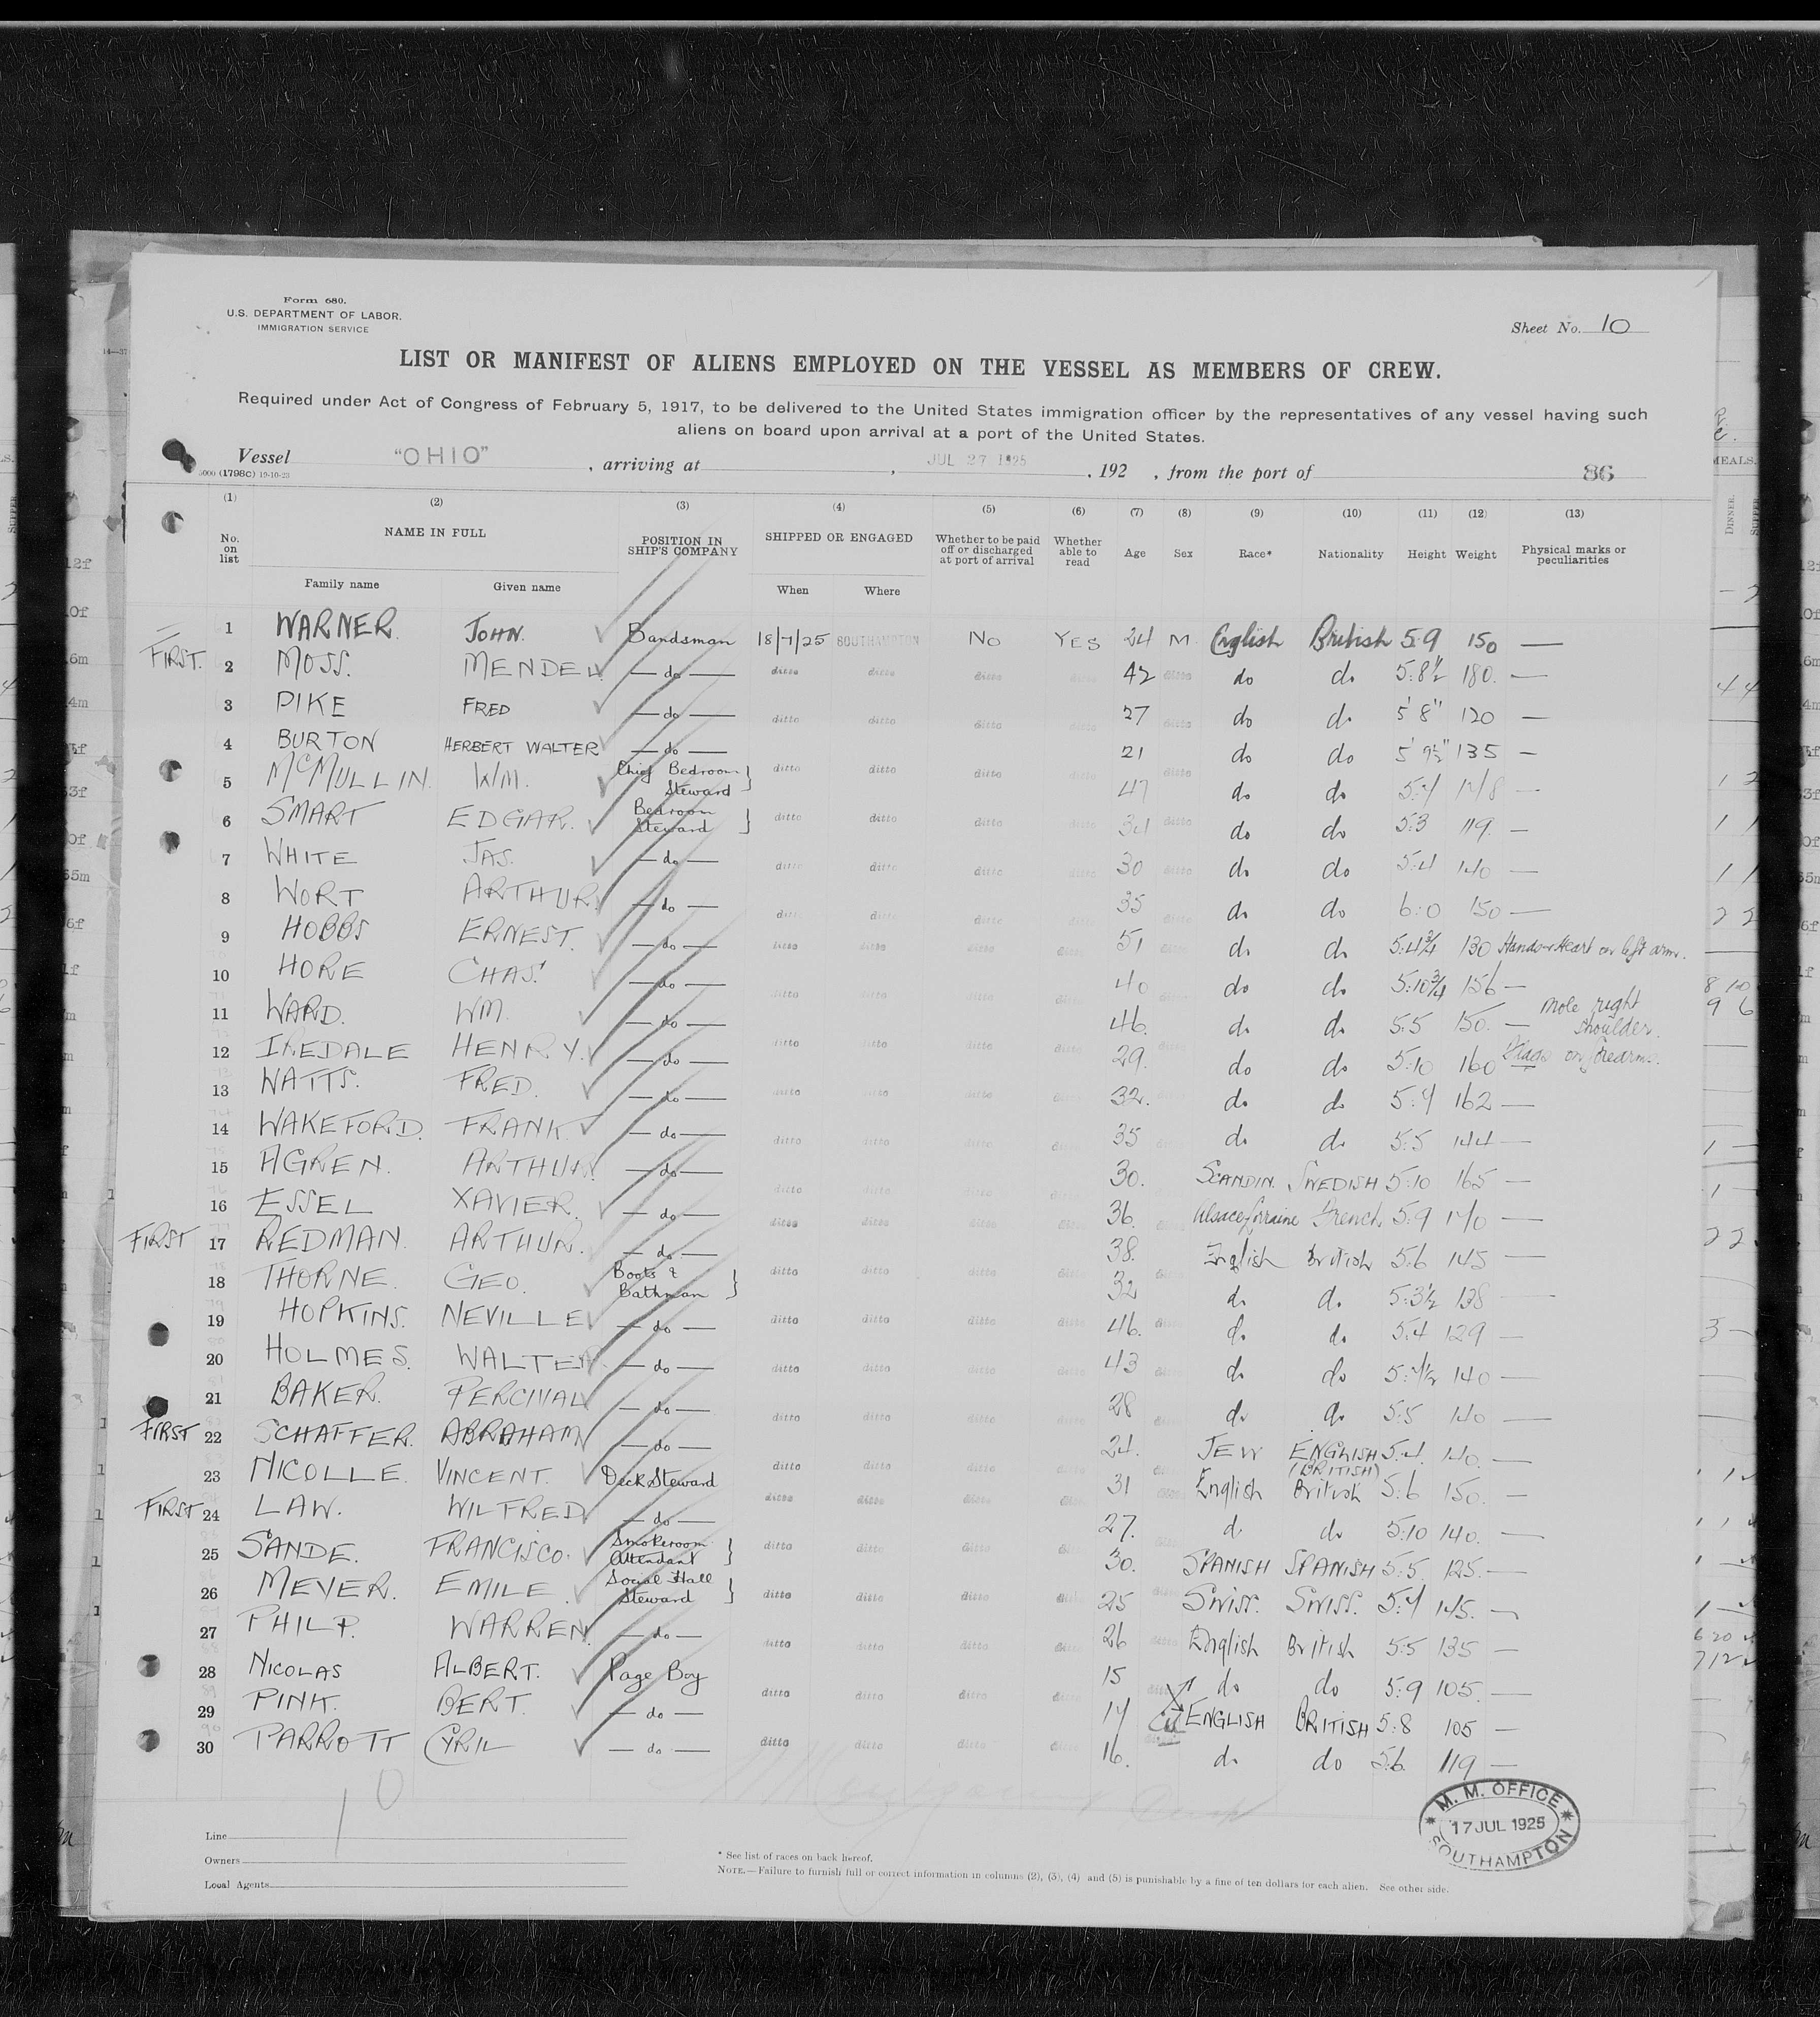 Form 680.
U.S. DEPARTMENT OF LABOR.
IMMIGRATION SERVICE
Sheet No. 10
LIST OR MANIFEST OF ALIENS EMPLOYED ON THE VESSEL AS MEMBERS OF CREW.
Required under Act of Congress of February 5, 1917, to be delivered to the United States immigration officer by the representatives of any vessel having such
aliens on board upon arrival at a port of the United States.
Vessel "OHIO" , arriving at , JUL 27 1925 , 192 , from the port of 86
5000 (1798c) 19-10-23
(1) (2) (3) (4) (5) (6) (7) (8) (9) (10) (11) (12) (13)
No. on list NAME IN FULL POSITION IN SHIP'S COMPANY SHIPPED OR ENGAGED Whether to be paid off or discharged at port of arrival Whether able to read Age Sex Race* Nationality Height Weight Physical marks or peculiarities
Family name Given name When Where
1 WARNER. JOHN. Bandsman 18/7/25 SOUTHAMPTON NO YES 24 M English British 5.9 150 —
FIRST. 2 MOSS. MENDEL. — do — ditto ditto ditto ditto 42 ditto do do 5:8½ 180. —
3 PIKE FRED — do — ditto ditto ditto ditto 27 ditto do do 5' 8" 120 —
4 BURTON HERBERT WALTER — do — 21 do do 5' 9½" 135 —
5 McMULLIN. WM. Chief Bedroom Steward } ditto ditto ditto ditto 47 ditto do do 5:7 148 —
6 SMART EDGAR. Bedroom Steward } ditto ditto ditto ditto 34 ditto do do 5:3 119. —
7 WHITE JAS. — do — ditto ditto ditto ditto 30 ditto do do 5:4 140 —
8 WORT ARTHUR. — do — ditto ditto ditto ditto 35 ditto do do 6:0 150 —
9 HOBBS ERNEST. — do — ditto ditto ditto ditto 51 ditto do do 5.4¾ 130 Hands & Heart on left arm.
10 HORE CHAS. — do — ditto ditto ditto ditto 40 ditto do do 5:10¾ 156 —
11 WARD. WM. — do — ditto ditto ditto ditto 46. do do 5:5 150. — mole right shoulder.
12 IREDALE HENRY. — do — ditto ditto ditto ditto 29. do do 5:10 160 Flags on forearms.
13 WATTS. FRED. — do — ditto ditto ditto ditto 32. do do 5:7 162 —
14 WAKEFORD. FRANK — do — ditto ditto ditto ditto 35 do do 5:5 144 —
15 AGREN. ARTHUR. — do — 30. SCANDIN. SWEDISH 5:10 165 —
16 ESSEL XAVIER. — do — ditto ditto ditto ditto 36. Alsace Lorraine French 5:9 140 —
FIRST 17 REDMAN. ARTHUR. — do — ditto ditto ditto ditto 38. English British 5:6 145 —
18 THORNE. GEO. Boots & Bathman } ditto ditto ditto ditto 32 do do 5:3½ 138 —
19 HOPKINS. NEVILLE — do — ditto ditto ditto ditto 46. ditto do do 5:4 129 —
20 HOLMES. WALTER — do — ditto ditto ditto ditto 43 ditto do do 5:7½ 140 —
21 BAKER. PERCIVAL — do — 28 do do 5:5 140 —
FIRST 22 SCHAFFER. ABRAHAM — do — ditto ditto ditto ditto 24. JEW ENGLISH (BRITISH) 5:4. 140. —
23 NICOLLE. VINCENT. Deck Steward ditto ditto ditto ditto 31 ditto English British 5:6 150. —
FIRST 24 LAW. WILFRED — do — ditto ditto ditto ditto 27. do do 5:10 140. —
25 SANDE. FRANCISCO. Smokeroom Attendant } ditto ditto ditto ditto 30. SPANISH SPANISH 5:5. 125. —
26 MEYER. EMILE. Social Hall Steward } ditto ditto ditto ditto 25 ditto SWISS. SWISS. 5:7 145. —
27 PHILP. WARREN. — do — ditto ditto ditto ditto 26 ditto English British 5:5 135 —
28 NICOLAS ALBERT. Page Boy 15 do do 5:9 105. —
29 PINK. BERT. — do — ditto ditto ditto ditto 17 ENGLISH BRITISH 5:8 105 —
30 PARROTT CYRIL — do — ditto ditto ditto ditto 16. do do 5:6. 119 —
10
M. M. OFFICE
17 JUL 1925
SOUTHAMPTON
Line
Owners
Local Agents
* See list of races on back hereof.
NOTE.—Failure to furnish full or correct information in columns (2), (3), (4) and (5) is punishable by a fine of ten dollars for each alien. See other side.